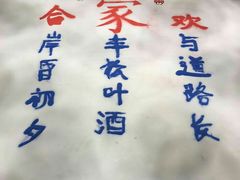 合家欢
岸昏初夕
丰叶酒
与道路长